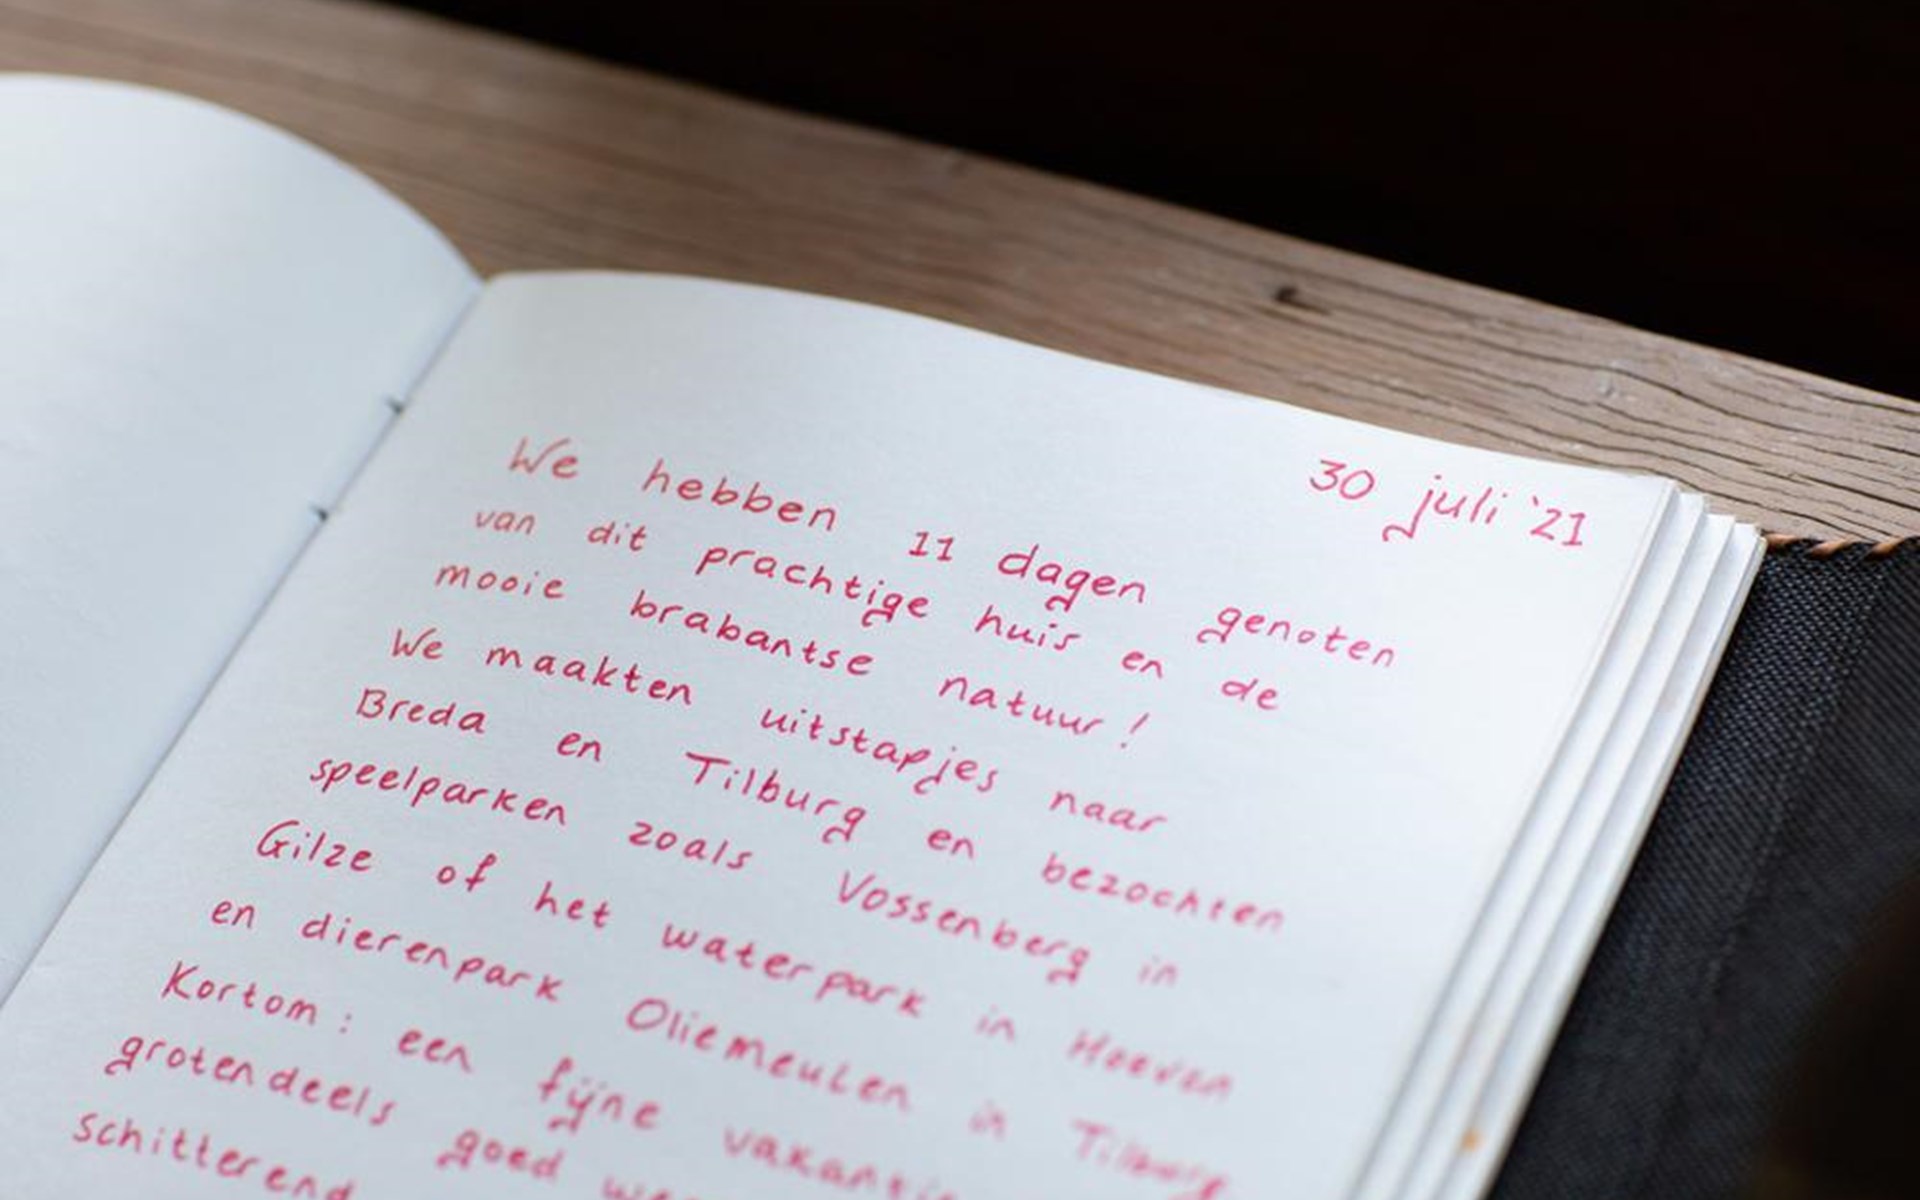 30 juli '21
We hebben 11 dagen genoten
van dit prachtige huis en de
mooie brabantse natuur!
We maakten uitstapjes naar
Breda en Tilburg en bezochten
speelparken zoals Vossenberg in
Gilze of het waterpark in Hoeven
en dierenpark Oliemeulen in Tilburg
Kortom: een fijne vakantie
grotendeels goed
schitterend